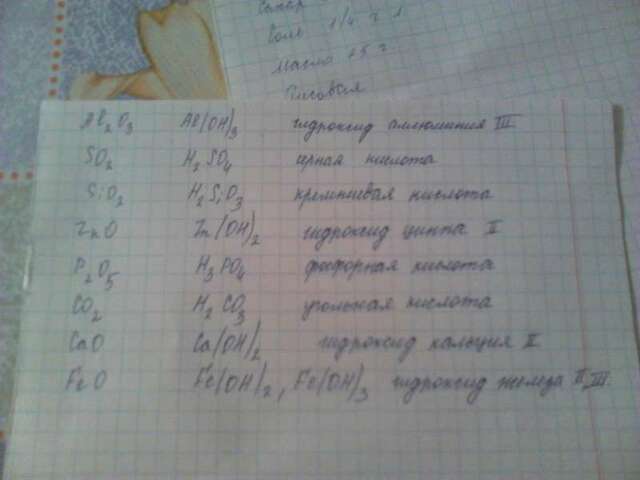 Сахар
Соль 1/4 ч л
Масло 75 г
Рисовая
Al2O3 Al(OH)3 гидроксид аллюминия III
SO2 H2SO4 серная кислота
SiO2 H2SiO3 кремниевая кислота
ZnO Zn(OH)2 гидроксид цинка II
P2O5 H3PO4 фосфорная кислота
CO2 H2CO3 угольная кислота
CaO Ca(OH)2 гидроксид кальция II
FeO Fe(OH)2, Fe(OH)3 гидроксид железа II, III